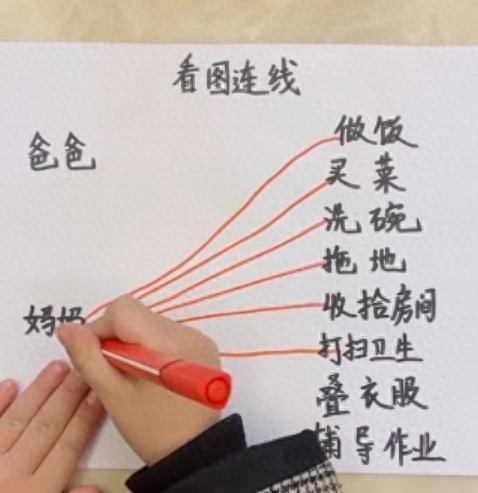 看图连线
爸爸
做饭
买菜
洗碗
拖地
妈妈
收拾房间
打扫卫生
叠衣服
辅导作业